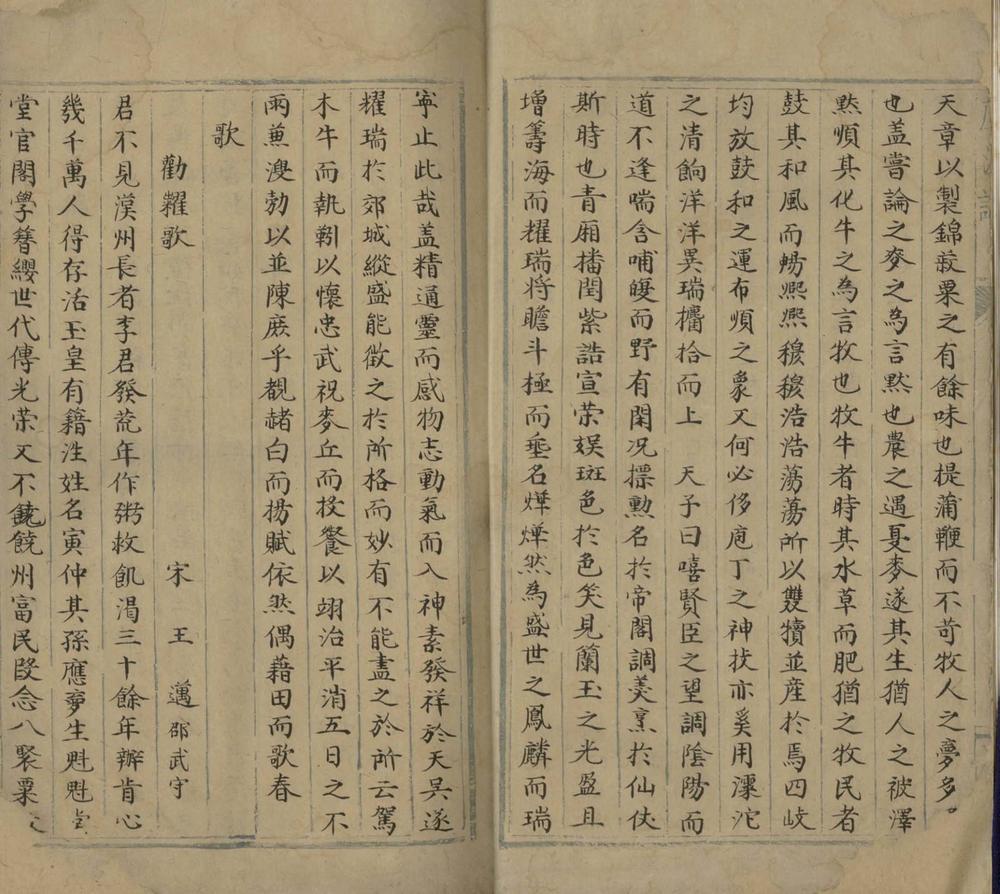 天章以製錦菽粟之有餘味也提蒲鞭而不苛牧人之夢多
也盖嘗論之麥之為言默也農之遇夏麥遂其生猶人之被澤
默順其化牛之為言牧也牧牛者時其水草而肥猶之牧民者
鼓其和風而暢熈熈穆穆浩浩蕩蕩所以雙犢並産於焉四岐
均放鼓和之運布順之象又何必侈庖丁之神技亦奚用漂沱
之清餉洋洋異瑞攟拾而上 天子曰嘻賢臣之望調隂陽而
道不逢喘含哺皞而野有閑况摽勲名於帝閣調羹烹於仙伕
斯時也青厢播閏紫誥宣荣娱斑色於色笑見蘭玉之光盈且
增籌海而耀瑞将瞻斗極而垂名燁燁然為盛世之鳳麟而瑞
寜止此哉盖精通靈而感物志動氣而入神素發祥於天吴遂
耀瑞於郊城縱盛能徵之於所格而妙有不能盡之於所云駕
木牛而執靷以懷忠武祝麥丘而投餐以翊治平消五日之不
雨蕙溲勃以並陳庶乎覩赭白而揚賦依然偶藉田而歌春
歌
勸糶歌
宋 王 邁 邵武守
君不見漢州長者李君發荒年作粥救飢渴三十餘年辦肯心
幾千萬人得存活玉皇有籍注姓名寅仲其孫應夢生魁魁堂
堂官閣學簪纓世代傳光荣又不饒饒州富民叚念八聚粟